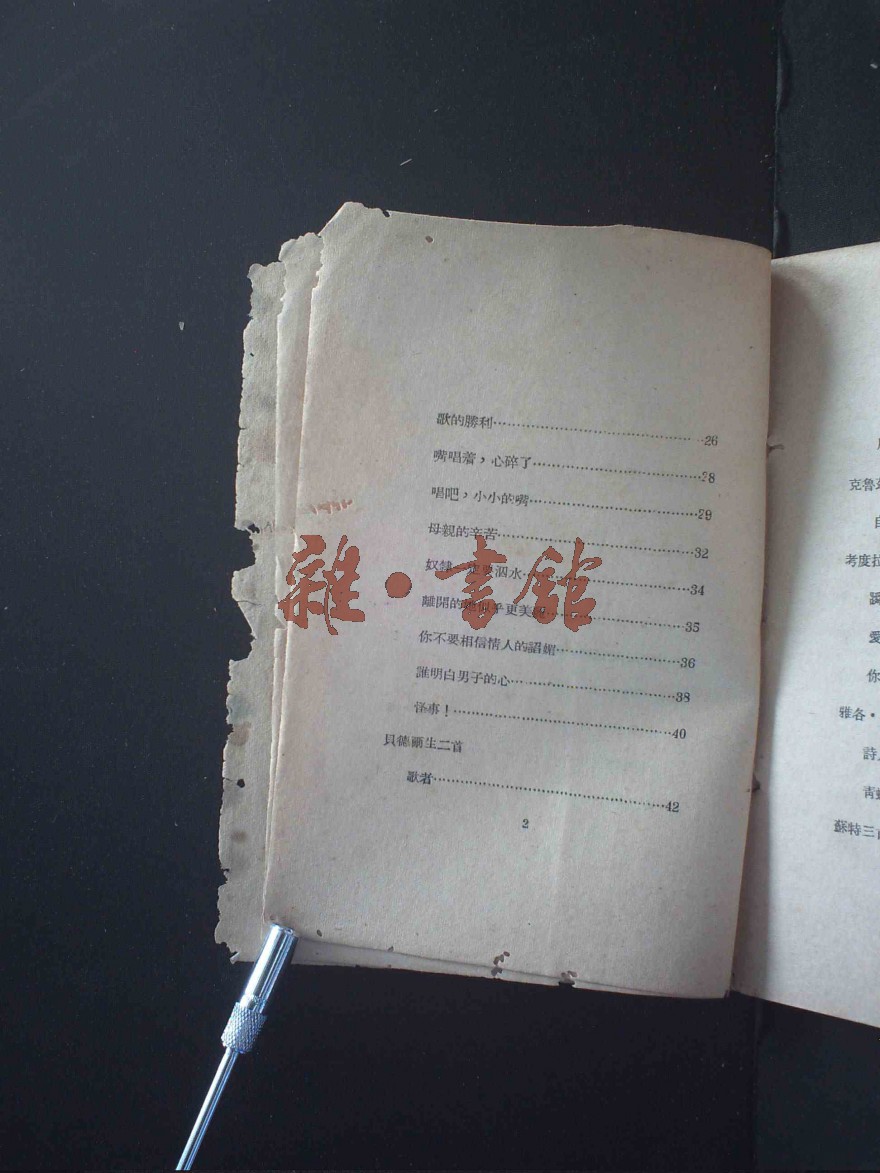 歌的勝利 26
嘴唱着，心碎了 28
唱吧，小小的嘴 29
母親的辛苦 32
奴隸 泅水 34
離開的 似乎更美 35
你不要相信情人的諂媚 36
誰明白男子的心 38
怪事！ 40
貝德爾生二首
歌者 42
2
雜·書館
克魯
自
考度拉
愛
你
雅各·
詩
青
蘇特三